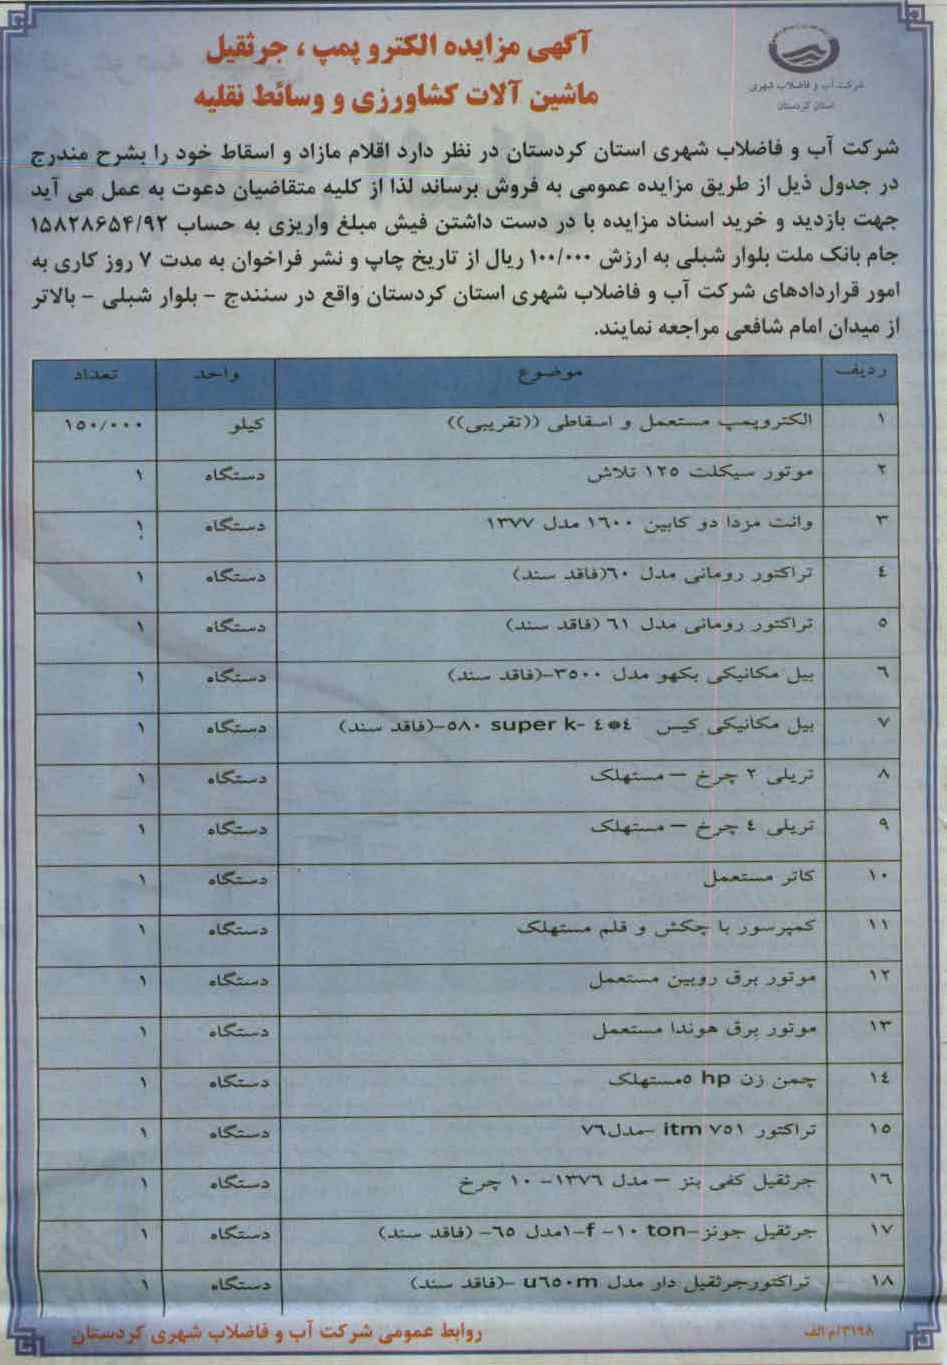 آگهی مزایده الکترو پمپ ، جرثقیل
ماشین آلات کشاورزی و وسائط نقلیه
شرکت آب و فاضلاب شهری
استان کردستان
شرکت آب و فاضلاب شهری استان کردستان در نظر دارد اقلام مازاد و اسقاط خود را بشرح مندرج
در جدول ذیل از طریق مزایده عمومی به فروش برساند لذا از کلیه متقاضیان دعوت به عمل می آید
جهت بازدید و خرید اسناد مزایده با در دست داشتن فیش مبلغ واریزی به حساب ۱۵۸۲۸۶۵۴/۹۲
جام بانک ملت بلوار شبلی به ارزش ۱۰۰/۰۰۰ ریال از تاریخ چاپ و نشر فراخوان به مدت ۷ روز کاری به
امور قراردادهای شرکت آب و فاضلاب شهری استان کردستان واقع در سنندج - بلوار شبلی - بالاتر
از میدان امام شافعی مراجعه نمایند.
ردیف موضوع واحد تعداد
١ الکتروپمپ مستعمل و اسقاطی ((تقریبی)) کیلو ١٥٠/٠٠٠
٢ موتور سیکلت ١٢٥ تلاش دستگاه ١
٣ وانت مزدا دو کابین ١٦٠٠ مدل ١٣٧٧ دستگاه ١
٤ تراکتور رومانی مدل ٦٠(فاقد سند) دستگاه ١
٥ تراکتور رومانی مدل ٦١ (فاقد سند) دستگاه ١
٦ بیل مکانیکی بکهو مدل ٣٥٠٠-(فاقد سند) دستگاه ١
٧ بیل مکانیکی کیس ٤*٤ -super k ٥٨٠-(فاقد سند) دستگاه ١
٨ تریلی ٢ چرخ – مستهلک دستگاه ١
٩ تریلی ٤ چرخ – مستهلک دستگاه ١
١٠ کاتر مستعمل دستگاه ١
١١ کمپرسور با چکش و قلم مستهلک دستگاه ١
١٢ موتور برق روبین مستعمل دستگاه ١
١٣ موتور برق هوندا مستعمل دستگاه ١
١٤ چمن زن hp ٥مستهلک دستگاه ١
١٥ تراکتور itm ٧٥١ –مدل٧٦ دستگاه ١
١٦ جرثقیل کفی بنز – مدل ١٣٧٦- ١٠ چرخ دستگاه ١
١٧ جرثقیل جونز-١-f -١٠ tonمدل ٦٥- (فاقد سند) دستگاه ١
١٨ تراکتورجرثقیل دار مدل u٦٥٠m -(فاقد سند) دستگاه ١
روابط عمومی شرکت آب و فاضلاب شهری کردستان
۳۱۹۸/م الف